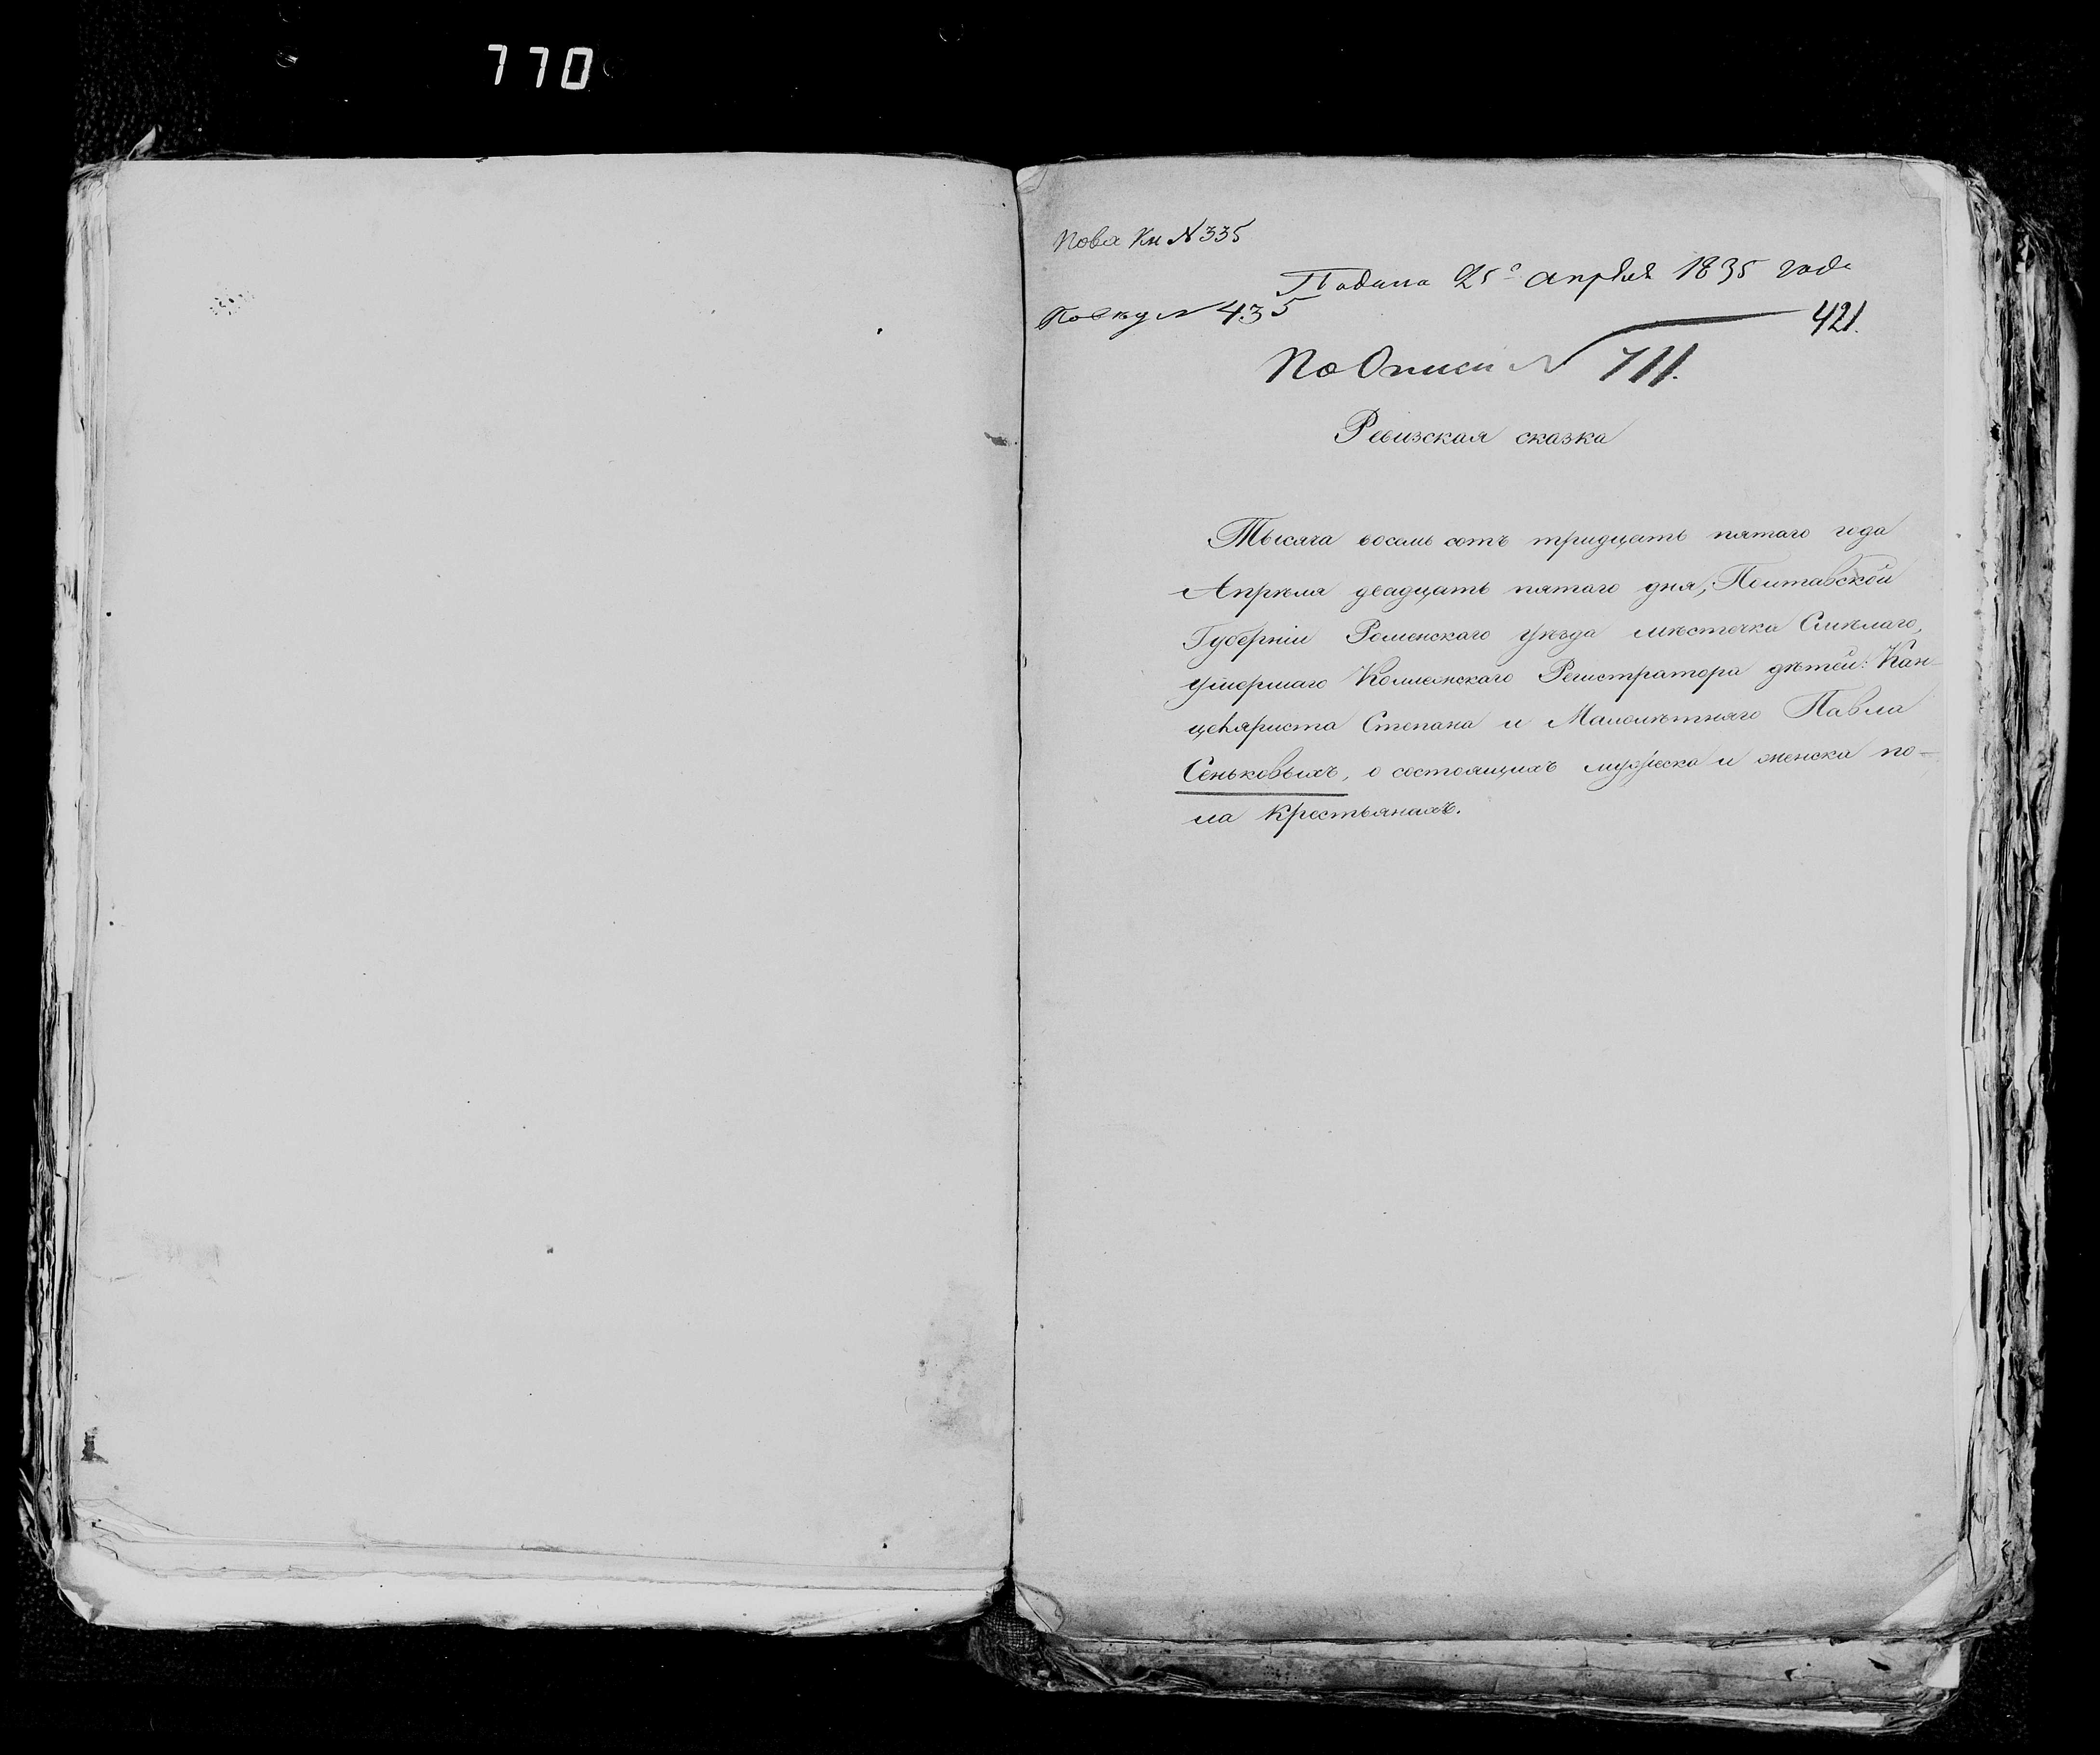 770
Пова Кн № 335
Подана 25го апреля 1835 года
№ 435
421.
По Описи № 711.
Ревизская сказка
Тысяча восемь сотъ тридцать пятаго года
Апрѣля двадцать пятаго дня, Полтавской
Губерніи Роменскаго уѣзда мѣстечка Смѣлаго,
умершаго Коллежскаго Регистратора дѣтей: Кан-
целяриста Степана и Малолѣтняго Павла
Сеньковыхъ, о состоящихъ мужеска и женска по-
ла крестьянахъ.